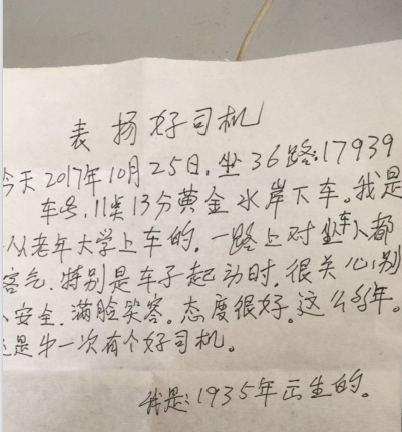 表扬好司机
今天2017年10月25日,坐36路:17939
车号,11点13分黄金水岸下车。我是
从老年大学上车的,一路上对坐车人都
客气,特别是车子起动时,很关心别
人安全,满脸笑容。态度很好。这么多年。
还是第一次有个好司机。
我是:1935年出生的。